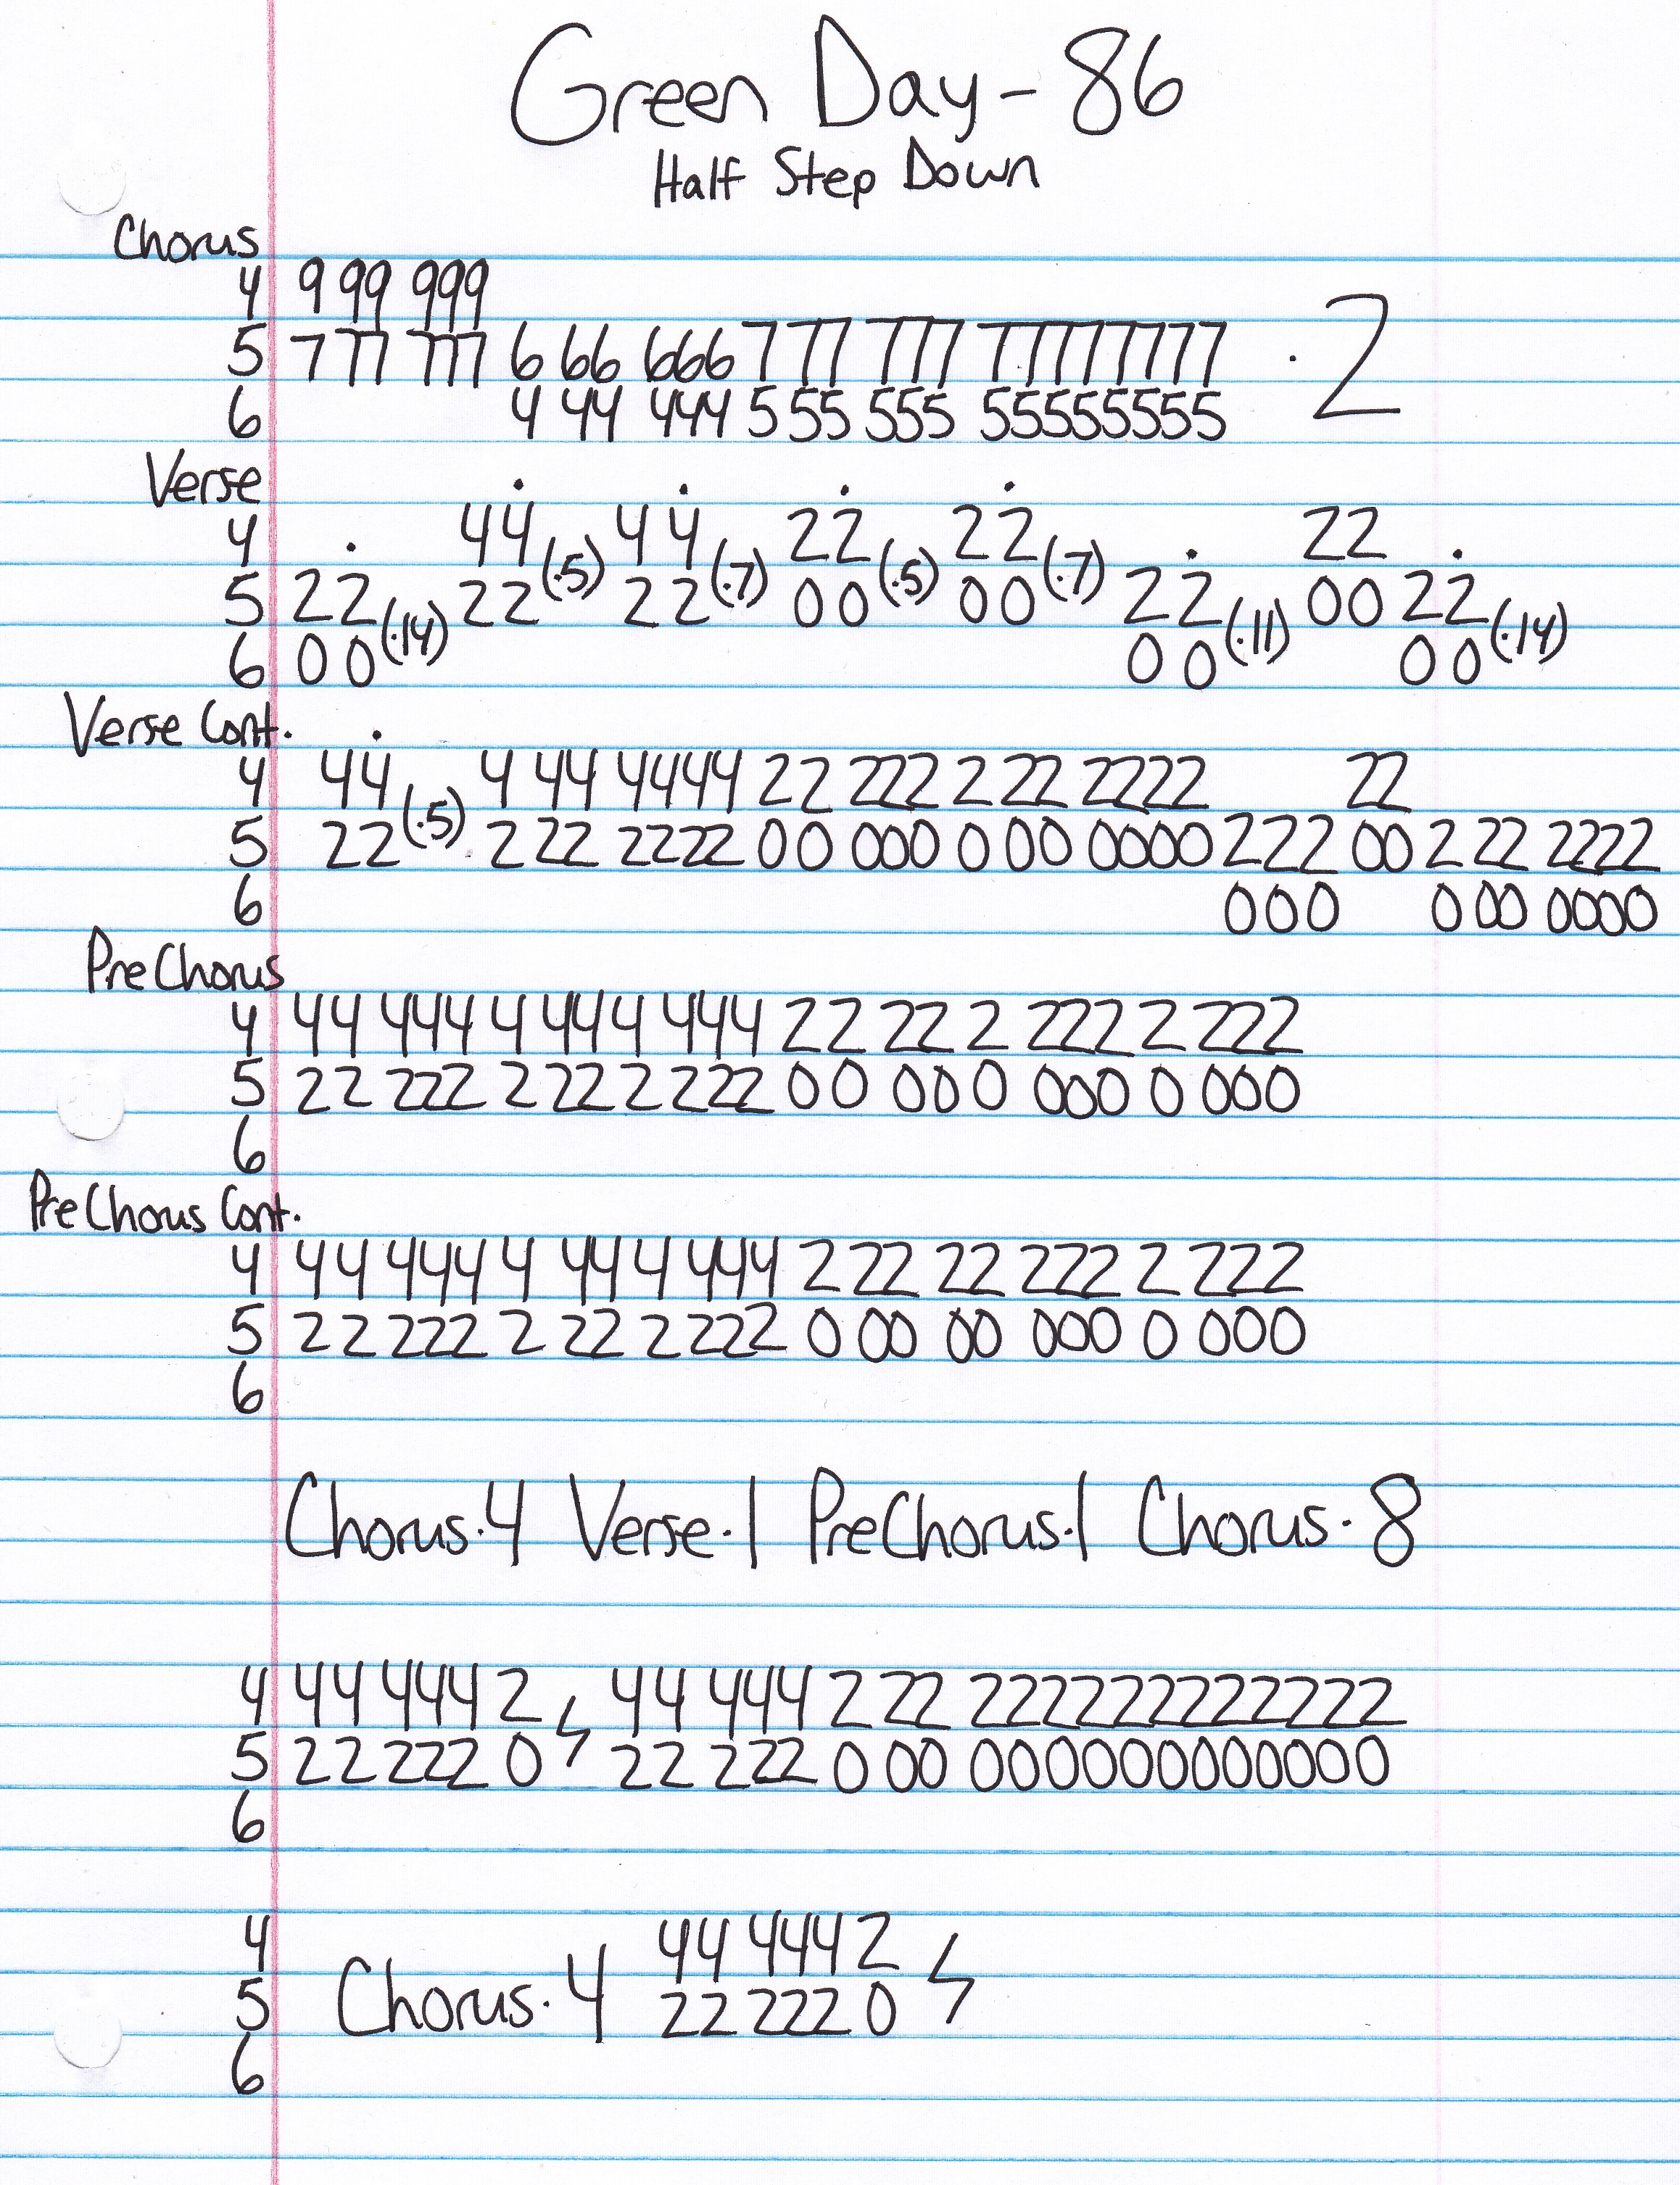 Green Day - 86
Half Step Down
Chorus
4 9 99 999
5 7 77 777 6 66 666 7 77 777 77777777 · 2
6 4 44 444 5 55 555 55555555
Verse
4 44 (·5) 44 (·7) 22 (·5) 22 (·7) 22
5 22 (·14) 22 22 00 00 22 (·11) 00 22 (·14)
6 00 00 00
Verse Cont.
4 44 (·5) 4 44 4444 22 222 2 22 2222 22
5 22 2 22 2222 00 000 0 00 0000 222 00 2 22 2222
6 000 0 00 0000
PreChorus
4 44 444 4 444 444 22 22 2 222 2 222
5 22 222 2 22 2 222 00 00 0 000 0 000
6
PreChorus Cont.
4 44 444 4 44 4 444 2 22 22 222 2 222
5 22 222 2 22 2 222 0 00 00 000 0 000
6
Chorus·4 Verse·1 PreChorus·1 Chorus·8
4 44 444 2 44 444 2 22 222222222222
5 22 222 0 22 222 0 00 000000000000
6
4 44 444 2
5 Chorus·4 22 222 0
6